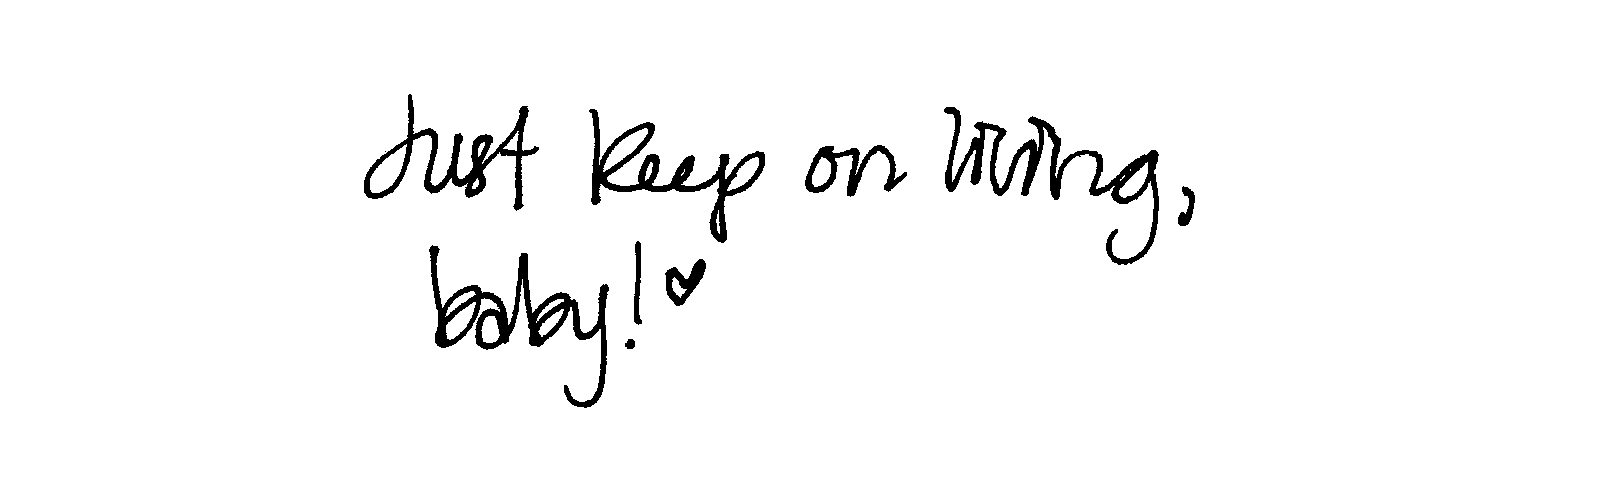 Just keep on living,
baby! ♥